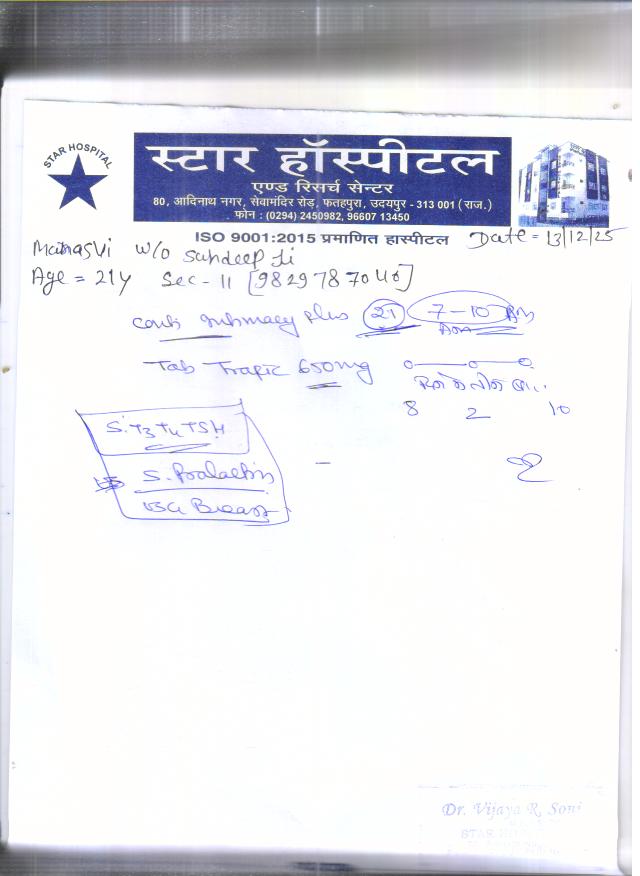 STAR HOSPITAL
स्टार हॉस्पीटल
एण्ड रिसर्च सेन्टर
80, आदिनाथ नगर, सेवामंदिर रोड़, फतहपुरा, उदयपुर - 313 001 (राज.)
फोन : (0294) 2450982, 96607 13450
ISO 9001:2015 प्रमाणित हास्पीटल
Date = 13/12/25
w/o Sandeep Ji
Age = 21y Sec - 11 [9829787040]
plus 21 7-10
Tab 650mg
दिन में तीन बार
8 2 10
S. T3 T4 TSH
S. Prolactin
USG Breast
Dr. Vijaya R. Soni